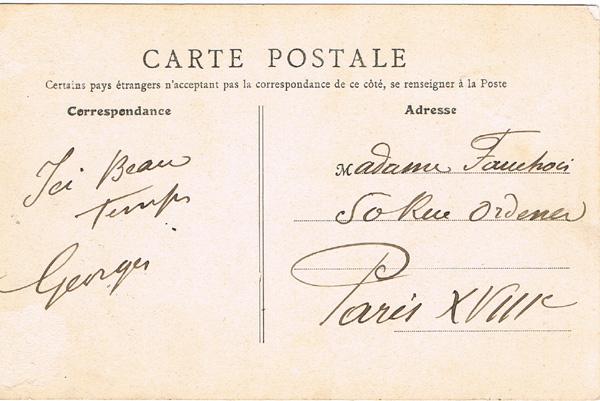 CARTE POSTALE
Certains pays étrangers n'acceptant pas la correspondance de ce côté, se renseigner à la Poste
Correspondance
Ici Beau
Temps
Georges
Adresse
Madame Fauchois
50 Rue Ordener
Paris XVIIIe